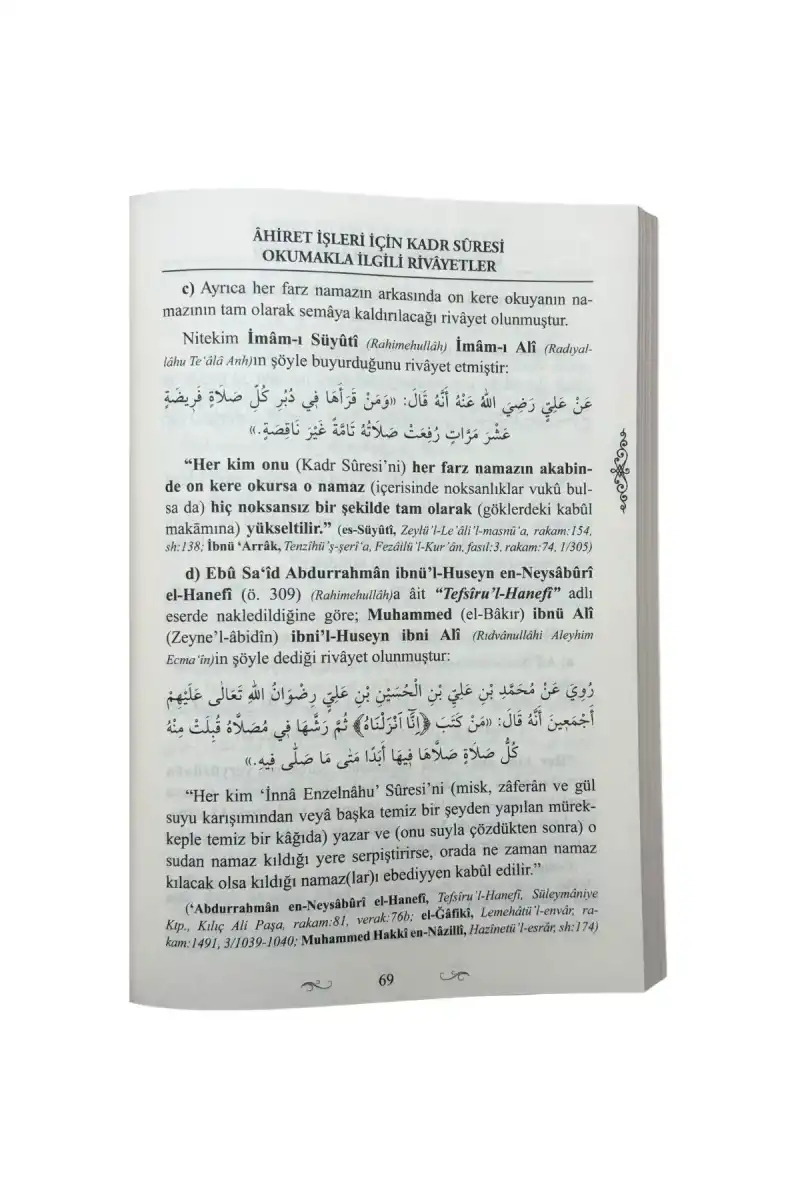 ÂHİRET İŞLERİ İÇİN KADR SÛRESİ
OKUMAKLA İLGİLİ RİVÂYETLER
c) Ayrıca her farz namazın arkasında on kere okuyanın na-
mazının tam olarak semâya kaldırılacağı rivâyet olunmuştur.
Nitekim İmâm-ı Süyûtî (Rahimehullâh) İmâm-ı Alî (Radıyal-
lâhu Te‘âlâ Anh)ın şöyle buyurduğunu rivâyet etmiştir:
عَنْ عَلِيٍّ رَضِيَ اللهُ عَنْهُ أَنَّهُ قَالَ: «وَمَنْ قَرَأَهَا فِي دُبُرِ كُلِّ صَلَاةٍ فَرِيضَةٍ
عَشْرَ مَرَّاتٍ رُفِعَتْ صَلَاتُهُ تَامَّةً غَيْرَ نَاقِصَةٍ.»
“Her kim onu (Kadr Sûresi’ni) her farz namazın akabin-
de on kere okursa o namaz (içerisinde noksanlıklar vukû bul-
sa da) hiç noksansız bir şekilde tam olarak (göklerdeki kabûl
makāmına) yükseltilir.” (es-Süyûtî, Zeylü’l-Le’âli’l-masnû‘a, rakam:154,
sh:138; İbnü ‘Arrâk, Tenzîhü’ş-şerî‘a, Fezâilü’l-Kur’ân, fasıl:3, rakam:74, 1/305)
d) Ebû Sa‘îd Abdurrahmân ibnü’l-Huseyn en-Neysâbûrî
el-Hanefî (ö. 309) (Rahimehullâh)a âit “Tefsîru’l-Hanefî” adlı
eserde nakledildiğine göre; Muhammed (el-Bâkır) ibnü Alî
(Zeyne’l-âbidîn) ibni’l-Huseyn ibni Alî (Rıdvânullâhi Aleyhim
Ecma‘în)in şöyle dediği rivâyet olunmuştur:
رُوِيَ عَنْ مُحَمَّدِ بْنِ عَلِيِّ بْنِ الْحُسَيْنِ بْنِ عَلِيٍّ رِضْوَانُ اللهِ تَعَالَى عَلَيْهِمْ
أَجْمَعِينَ أَنَّهُ قَالَ: «مَنْ كَتَبَ ﴿إِنَّا أَنْزَلْنَاهُ﴾ ثُمَّ رَشَّهَا فِي مُصَلَّاهُ قُبِلَتْ مِنْهُ
كُلُّ صَلَاةٍ صَلَّاهَا فِيهَا أَبَدًا مَتَى مَا صَلَّى فِيهِ.»
“Her kim ‘İnnâ Enzelnâhu’ Sûresi’ni (misk, zâferân ve gül
suyu karışımından veyâ başka temiz bir şeyden yapılan mürek-
keple temiz bir kâğıda) yazar ve (onu suyla çözdükten sonra) o
sudan namaz kıldığı yere serpiştirirse, orada ne zaman namaz
kılacak olsa kıldığı namaz(lar)ı ebediyyen kabûl edilir.”
(‘Abdurrahmân en-Neysâbûrî el-Hanefî, Tefsîru’l-Hanefî, Süleymâniye
Ktp., Kılıç Ali Paşa, rakam:81, verak:76b; el-Ğâfikî, Lemehâtü’l-envâr, ra-
kam:1491, 3/1039-1040; Muhammed Hakkî en-Nâzillî, Hazînetü’l-esrâr, sh:174)
69